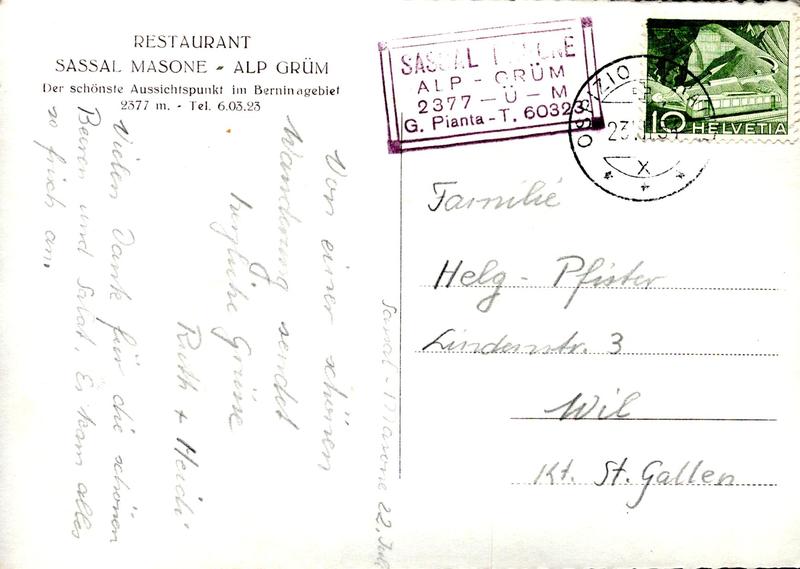 RESTAURANT
SASSAL MASONE - ALP GRÜM
Der schönste Aussichtspunkt im Berninagebiet
2377 m. - Tel. 6.03.23
SASSAL MASONE
ALP - GRÜM
2377 - Ü - M
G. Pianta - T. 60323
OSPIZIO
X
10 HELVETIA
Von einer schönen
Wanderung sendet
herzliche Grüsse
Ruth + Heidi
Vielen Dank für die schönen
Beeren und Salat. Es kam alles
so frisch an.
Sassal-Masone 22. Juli
Familie
Helg - Pfister
Lindenstr. 3
Wil
Kt. St. Gallen